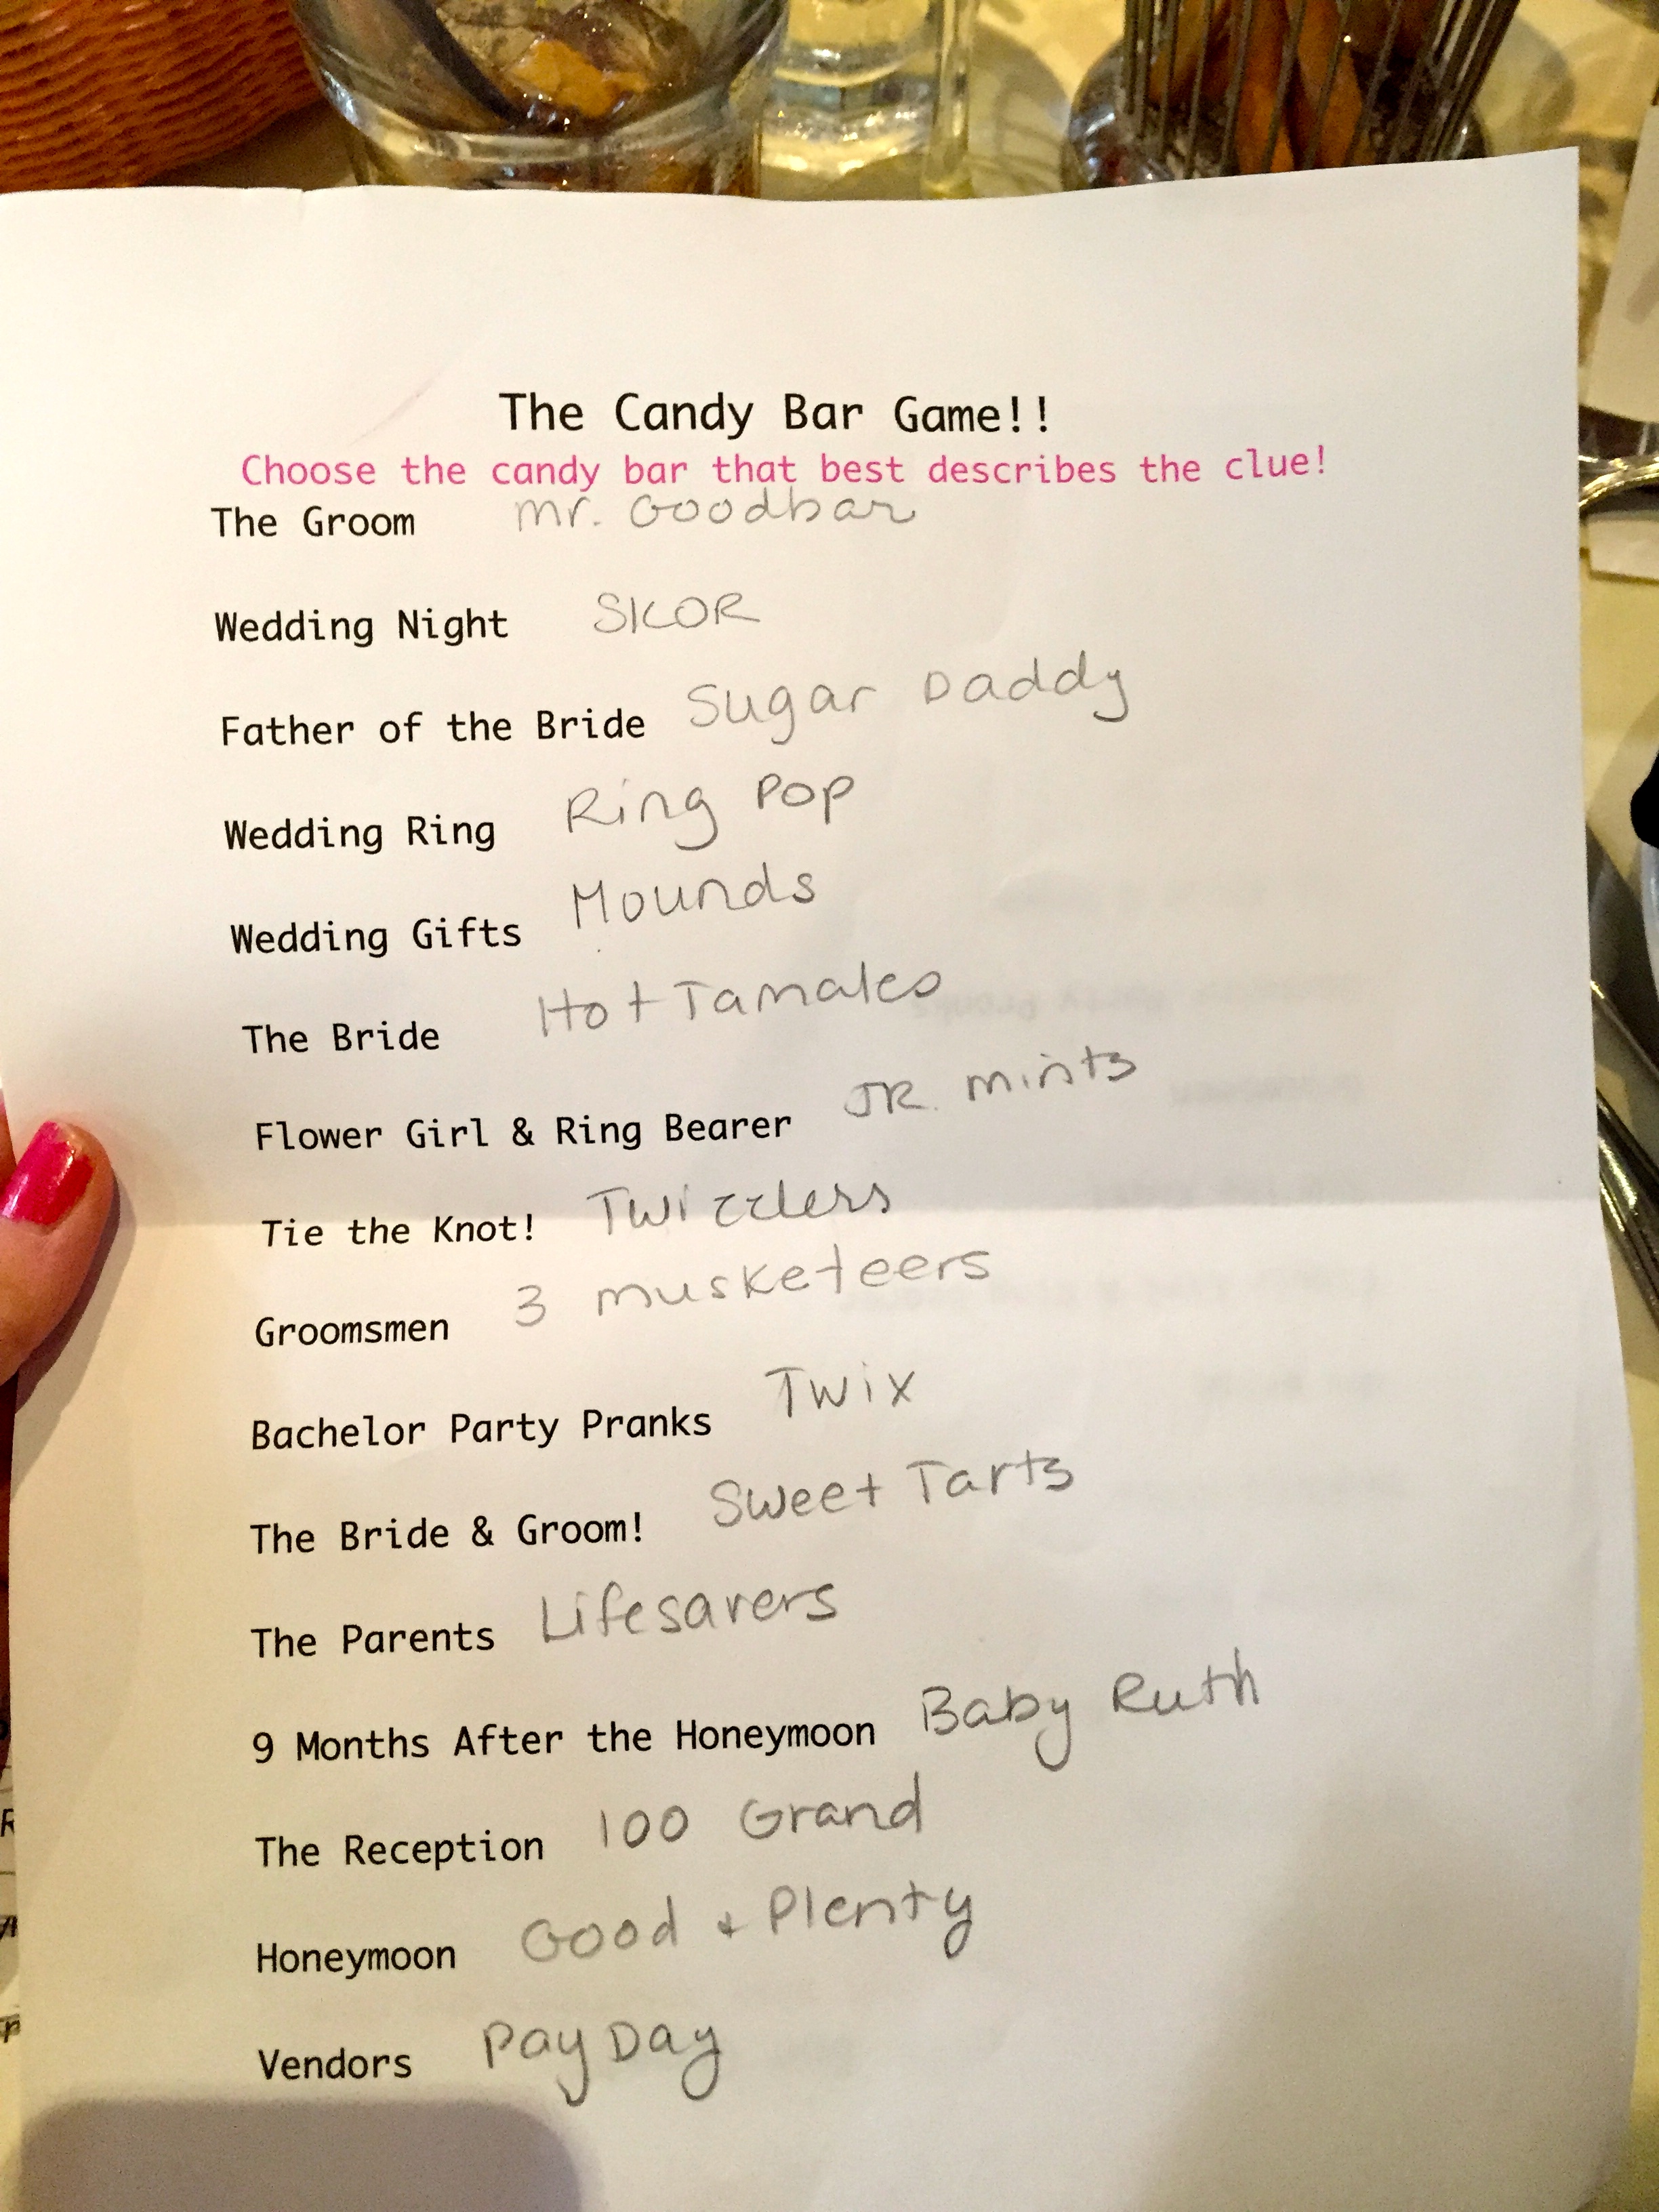 The Candy Bar Game!!
Choose the candy bar that best describes the clue!
The Groom mr. Goodbar
Wedding Night SKOR
Father of the Bride Sugar Daddy
Wedding Ring Ring Pop
Wedding Gifts Mounds
The Bride Hot Tamales
Flower Girl & Ring Bearer JR. mints
Tie the Knot! Twizzlers
Groomsmen 3 musketeers
Bachelor Party Pranks Twix
The Bride & Groom! Sweet Tarts
The Parents Lifesavers
9 Months After the Honeymoon Baby Ruth
The Reception 100 Grand
Honeymoon Good + Plenty
Vendors Pay Day